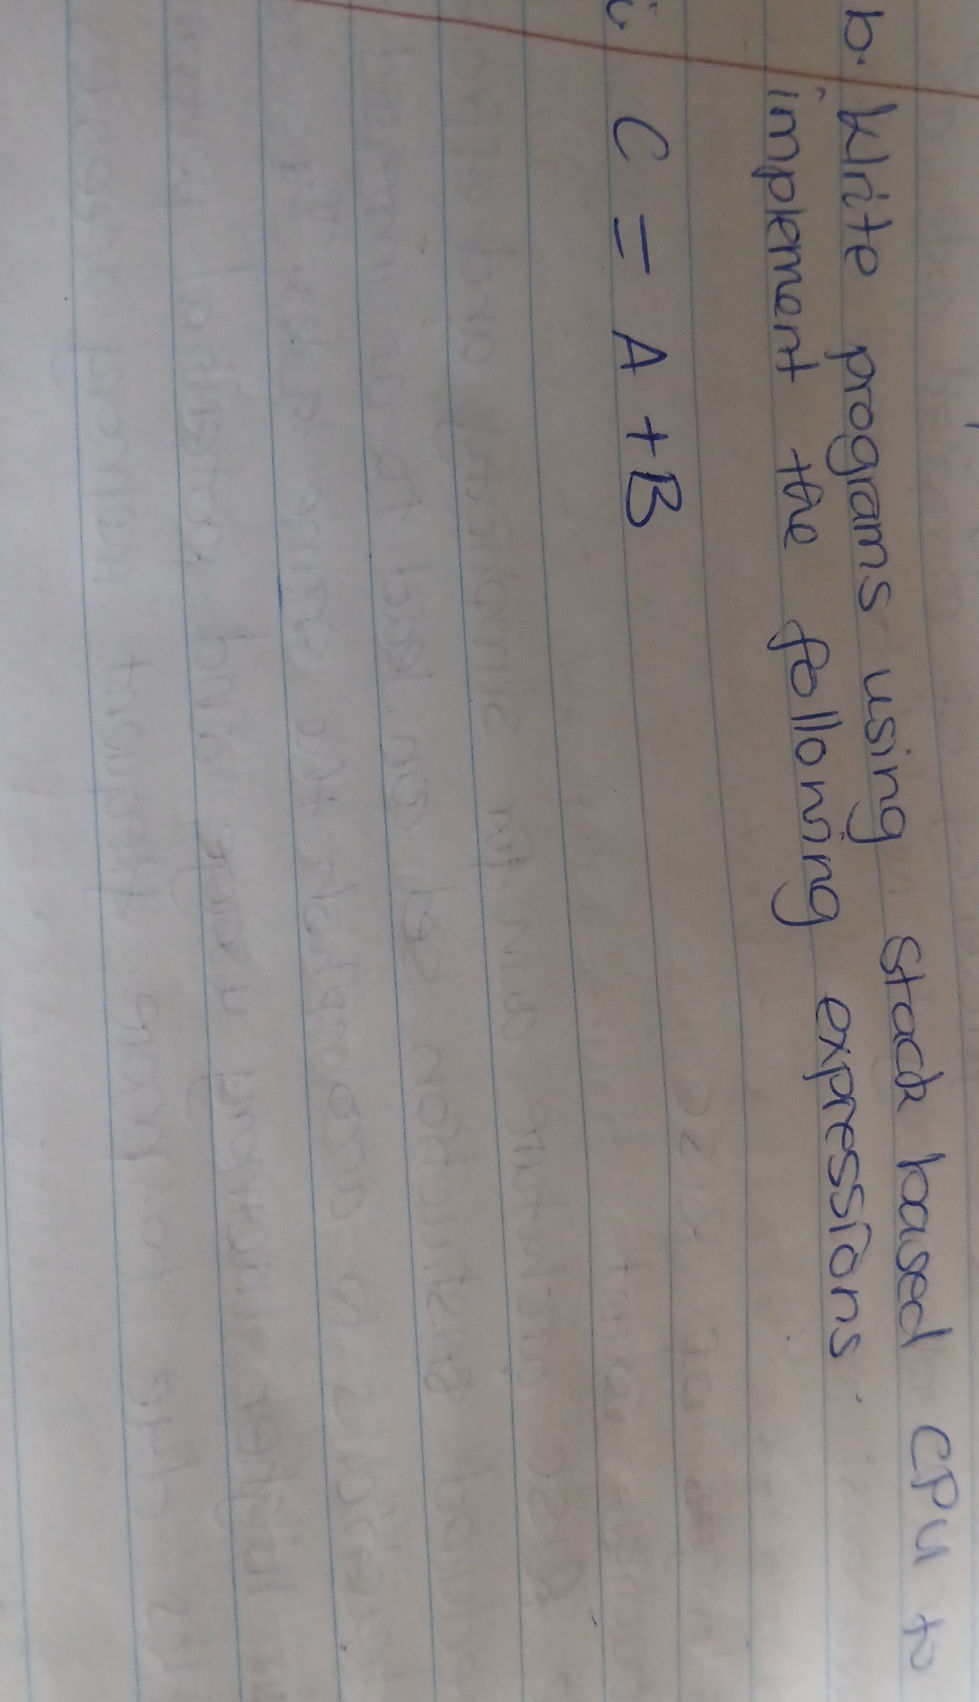 b. Write programs using stack based CPU to
implement the following expressions.
i. C = A + B